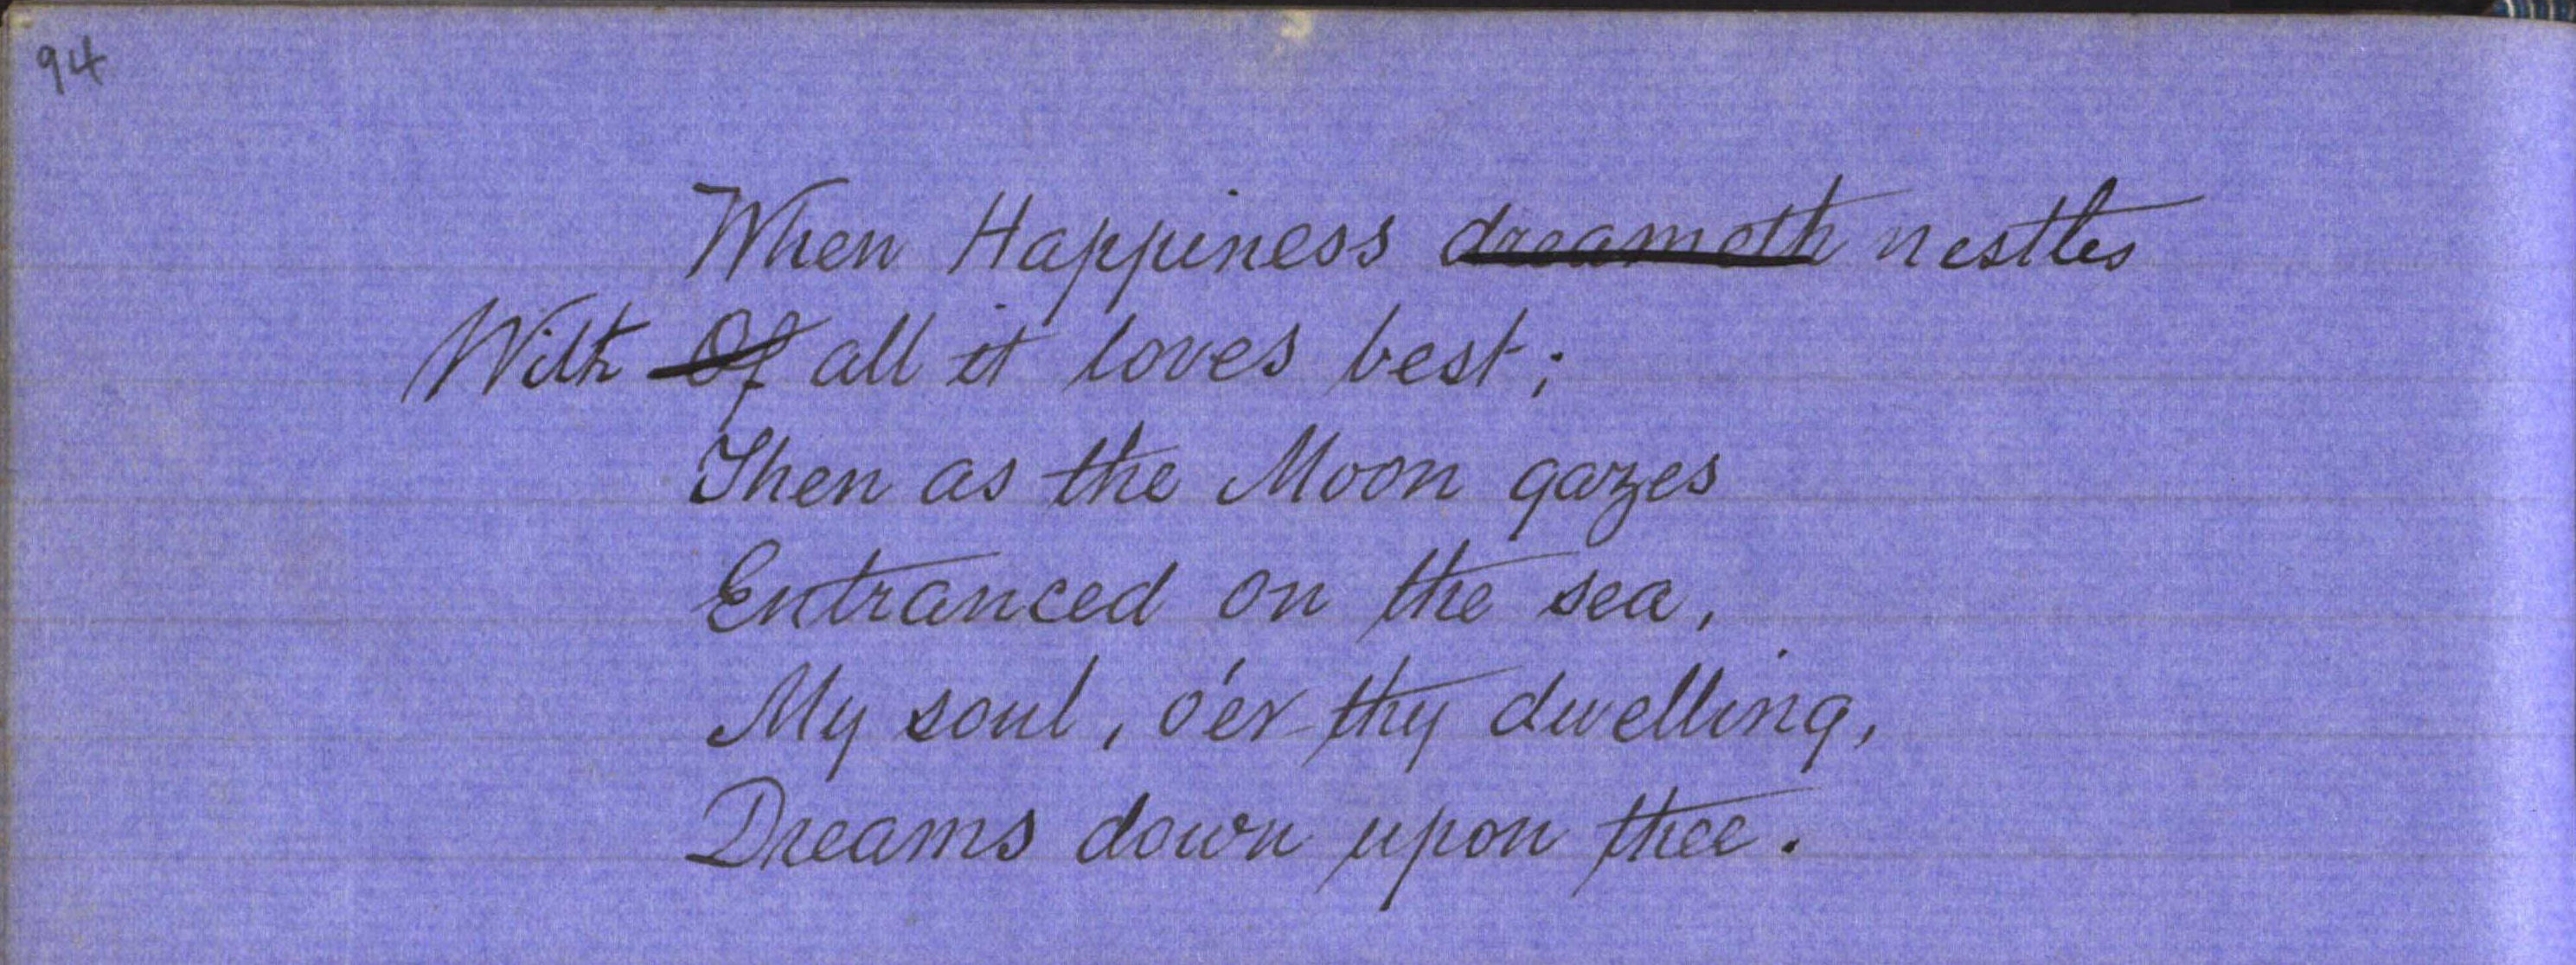 94
When Happiness dreameth nestles
With Of all it loves best;
Then as the Moon gazes
Entranced on the sea,
My soul, o'er thy dwelling,
Dreams down upon thee.